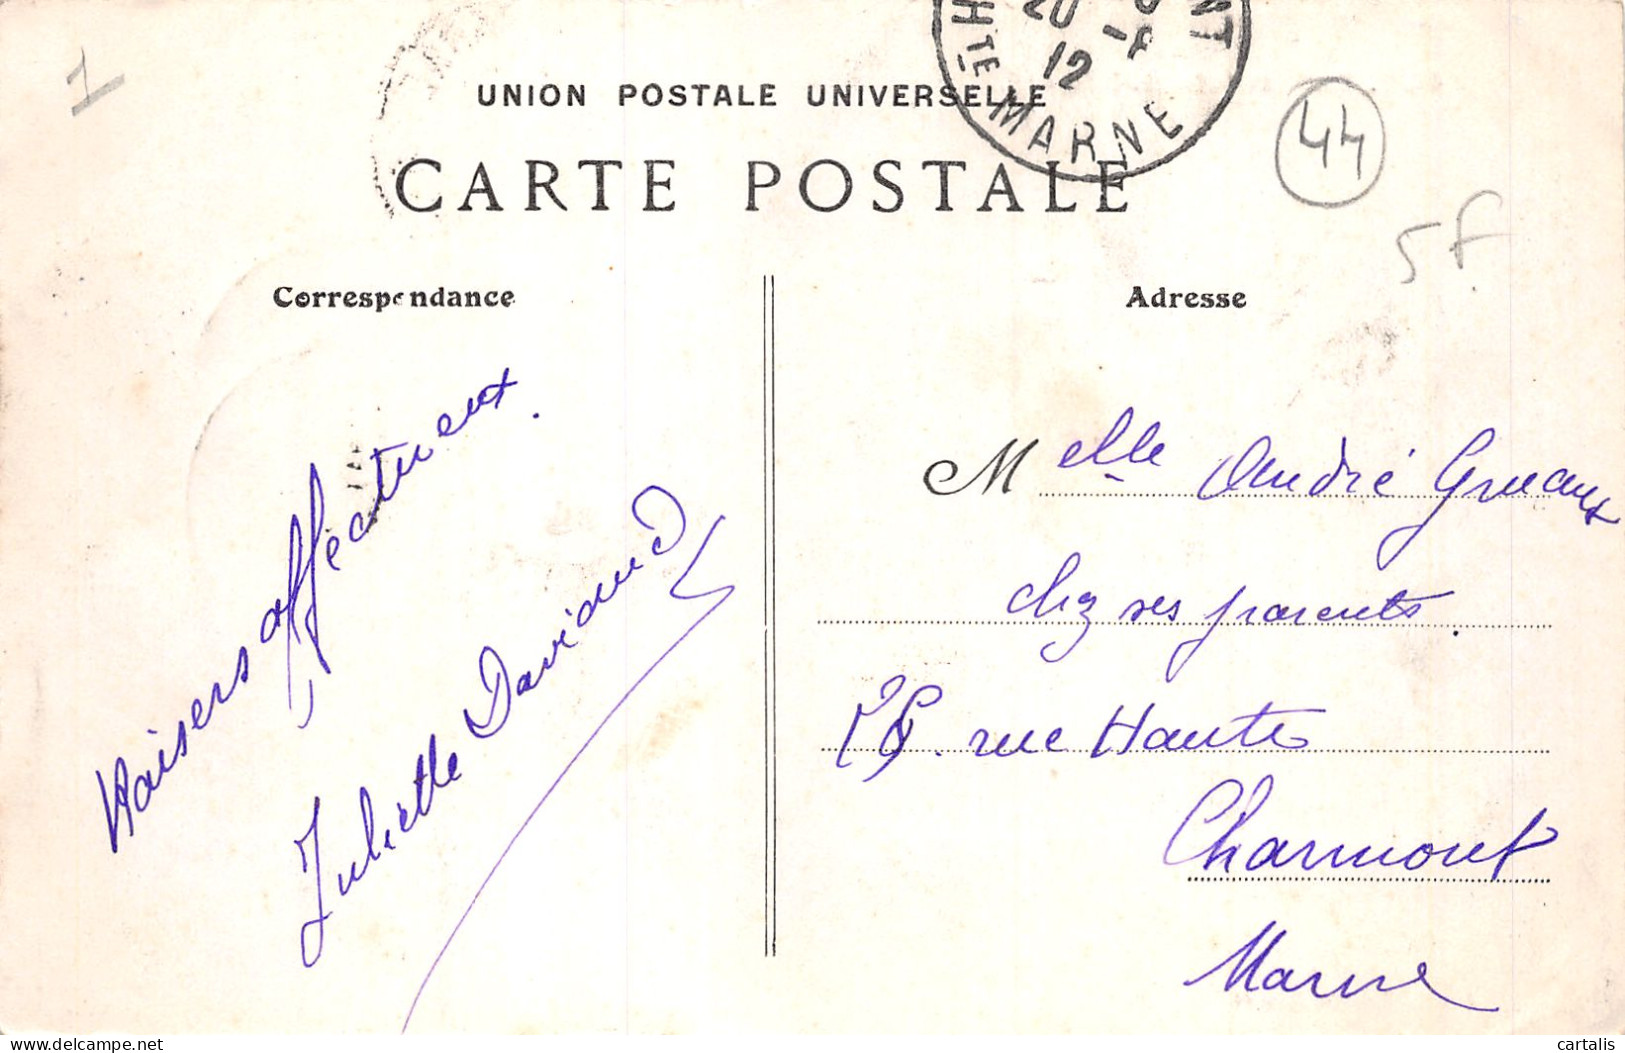 1
20
12
Hte MARNE
UNION POSTALE UNIVERSELLE
44
CARTE POSTALE
5f
Correspondance
Adresse
Baisers affectueux.
Juliette Daviaud
Melle André Gruaux
chez ses parents.
rue Haute
Charmont
Marne
delcampe.net
cartalis